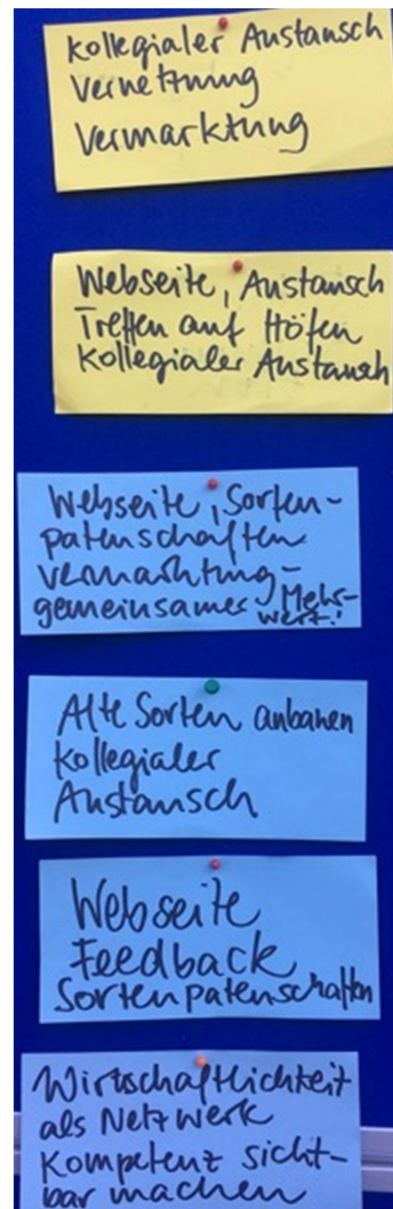 Kollegialer Austausch
Vernetzung
Vermarktung
Webseite, Austausch
Treffen auf Höfen
Kollegialer Austausch
Webseite, Sorten-
patenschaften
Vermarktung-
gemeinsames Mehr-
wert!
Alte Sorten anbauen
Kollegialer
Austausch
Webseite
Feedback
Sortenpatenschaften
Wirtschaftlichkeit
als Netzwerk
Kompetenz sicht-
bar machen